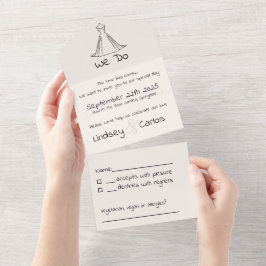 We Do
The time has come...
We want to invite you to our special day
September 22th 2025
Please come help us celebrate our
Lindsey & Carlos
Name
accepts with pleasure
declines with regrets
Vegetarian, vegan or allergies?